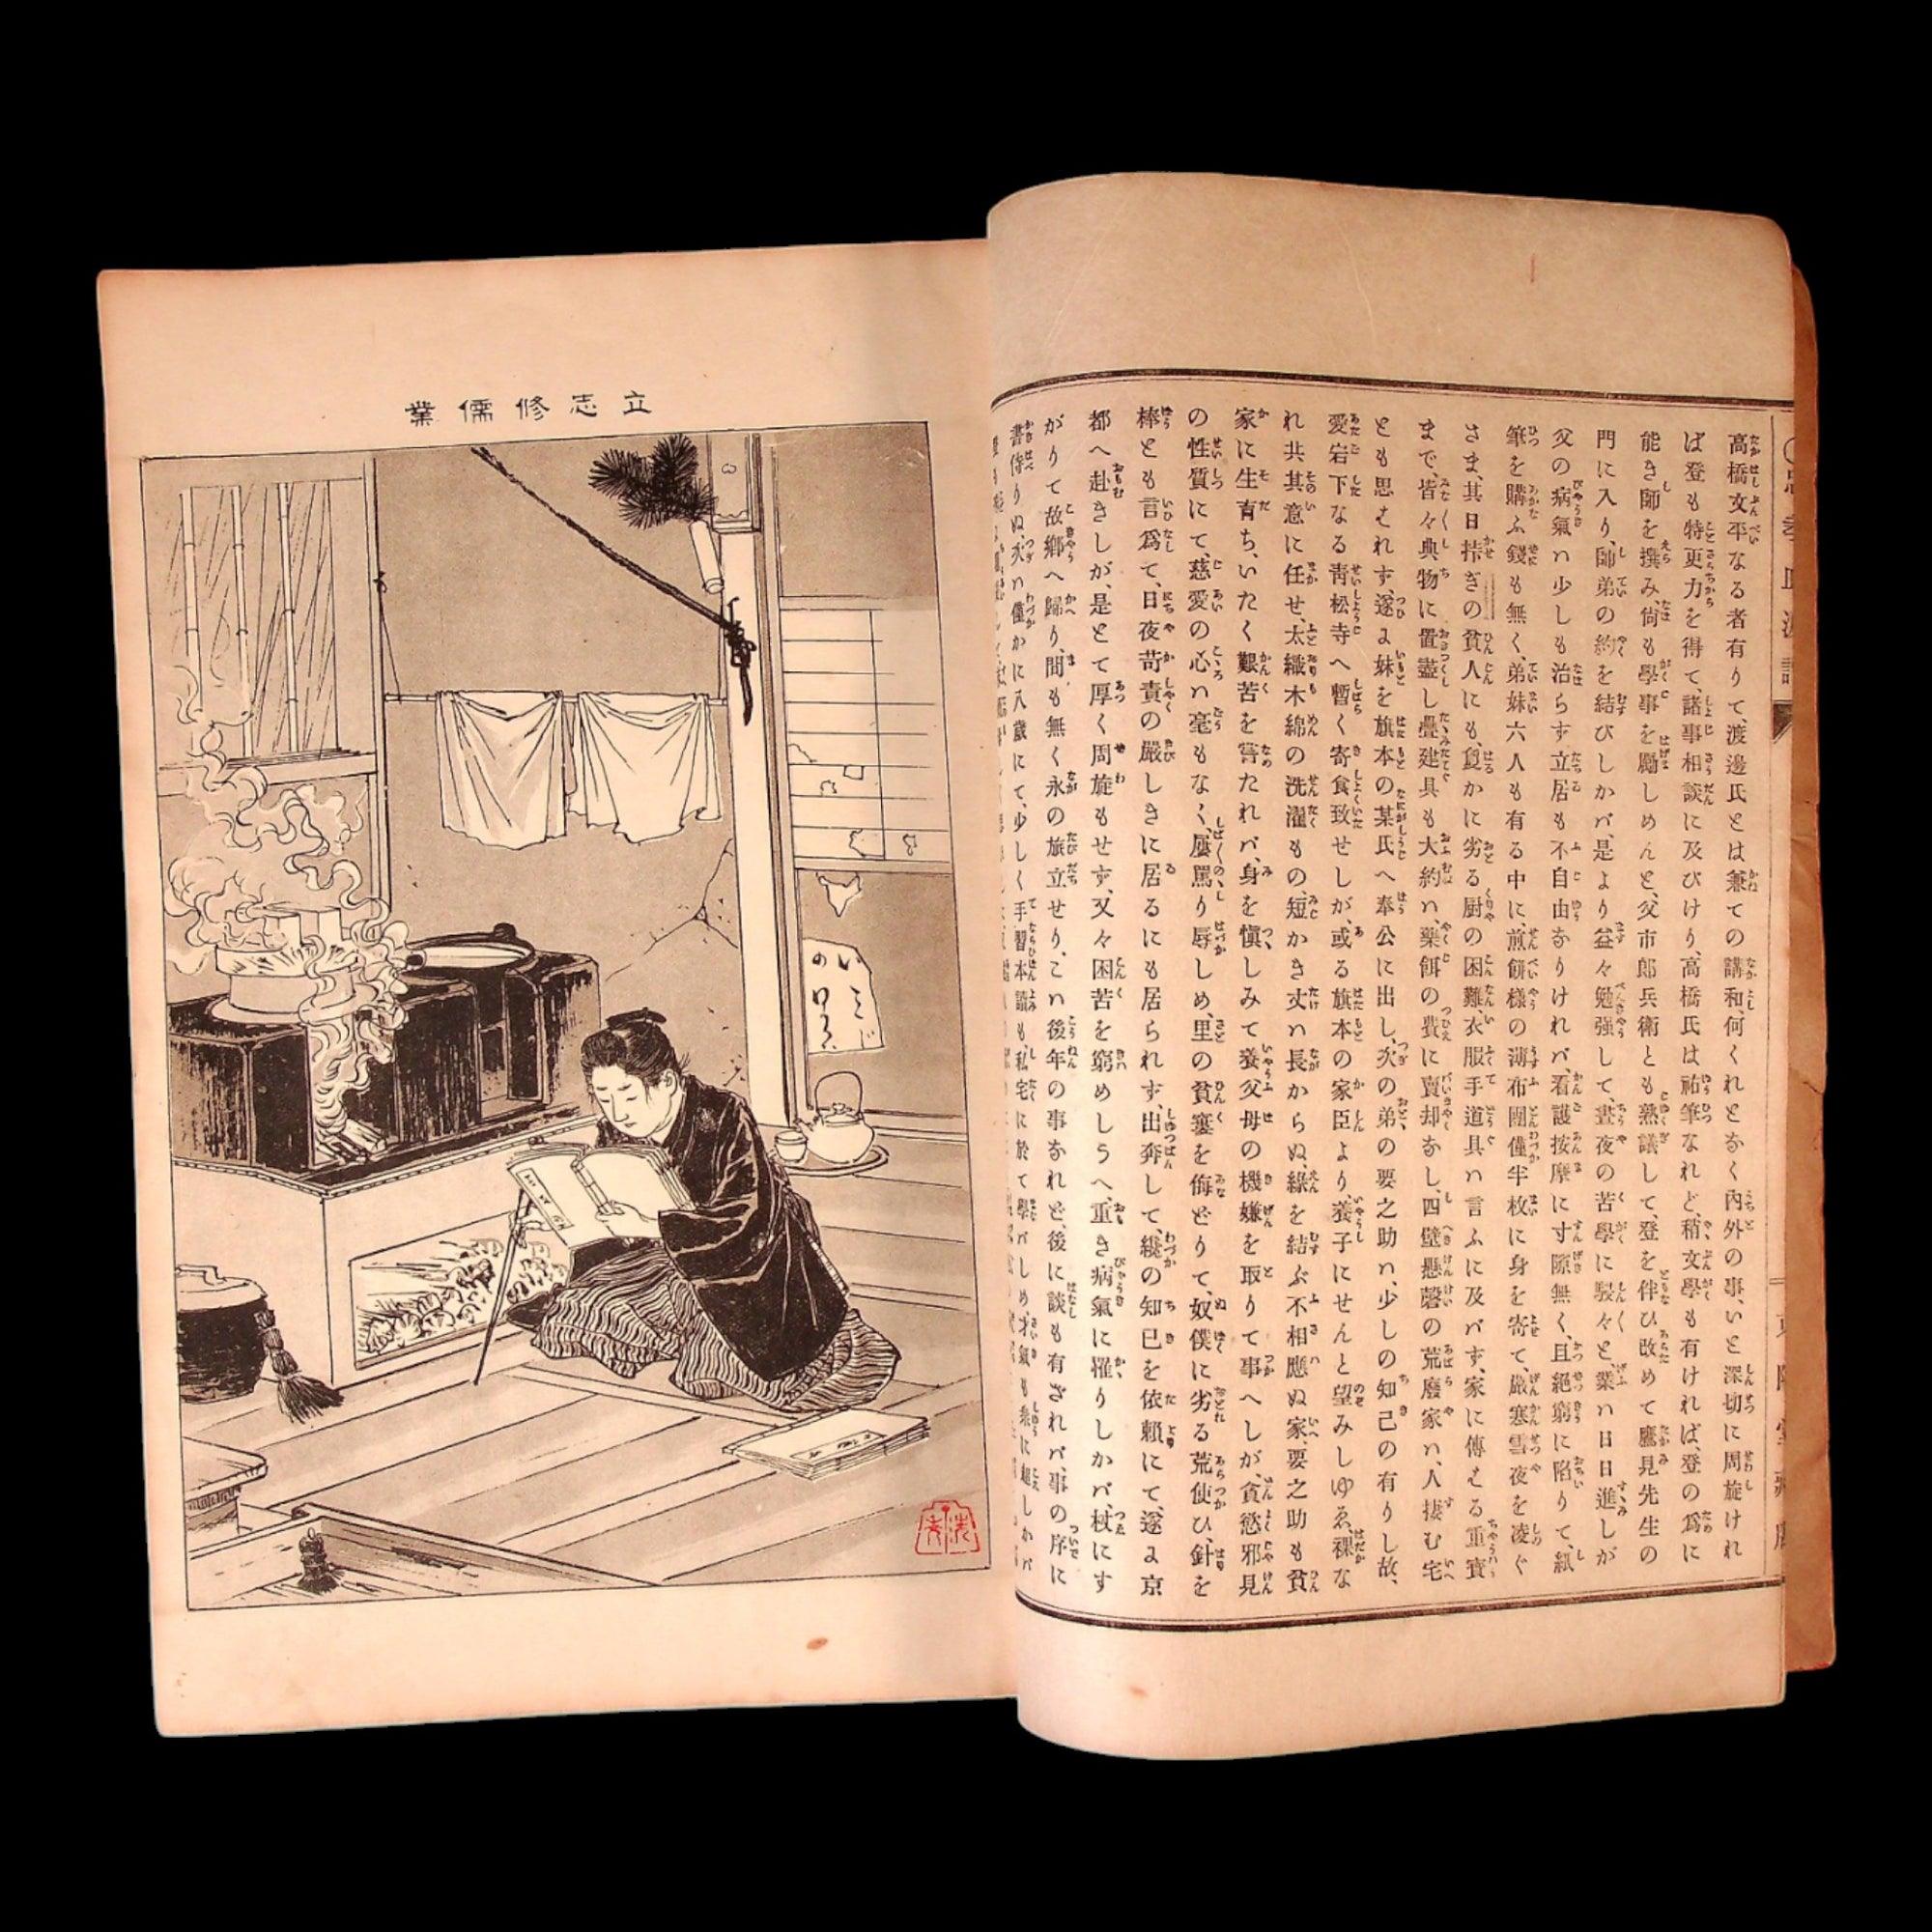 高橋文平なる者有りて、渡邊氏とは兼ての講和、何くれとなく內外の事、いと深切に周旋けれ
ば登も特更力を得て、諸事相談に及びけり、高橋氏は祐筆なれど、稍文學も有ければ、登の爲に
能き師を撰み、尙も學事を勵しめんと、父市郎兵衛とも熟議して、登を伴ひ改めて鷹見先生の
門に入り、師弟の約を結びしかバ、是より益々勉强して、晝夜の苦學に駸々と、業ハ日日進しが
父の病氣ハ少しも治らず立居も不自由なりけれバ、看護按摩に寸隙無く、且絕窮に陷りて、紙
筆を購ふ錢も無く、弟妹六人も有る中に、煎餅樣の薄布團僅半枚に身を寄て、嚴寒雪夜を凌ぐ
さま、其日持ぎの貧人にも、夐かに劣る厨の困難、衣服手道具ハ言ふに及バず、家に傳える重寶
まで、皆々典物に置盡し疊建具も大約ハ、藥餌の費に賣却なし、四壁懸磬の荒廢家ハ、人捿む宅
とも思はれず、遂に妹を旗本の某氏へ奉公に出し、次の弟の要之助ハ、少しの知己の有りし故、
愛宕下なる靑松寺へ暫く寄食致せしが、或る旗本の家臣より、養子にせんと望みしゆゑ、裸な
れ共其意に任せ、太織木綿の洗濯もの、短かき丈ハ長からぬ、緣を結ぶ不相應ぬ家、要之助も貧
家に生育ち、いたく艱苦を甞たれバ、身を愼しみて養父母の機嫌を取りて事へしが、貪慾邪見
の性質にて、慈愛の心ハ毫もなく、屢罵り辱しめ、里の貧寠を侮どりて、奴僕に劣る荒使ひ、針を
棒とも言爲て、日夜苛責の嚴しきに居るにも居られず、出奔して、纔の知己を依賴にて、遂に京
都へ赴きしが、是とて厚く周旋もせず、又々困苦を窮めしうへ、重き病氣に罹りしかバ、杖にす
がりて故鄕へ歸り、間も無く永の旅立せり、こハ後年の事なれど、後に談も有ざれバ、事の序に
書侍りぬ、次ハ僅かに八歲にて、少しく手習本讀も、私宅に於て學バしめ才氣も衆に超しかバ
立志修儒業